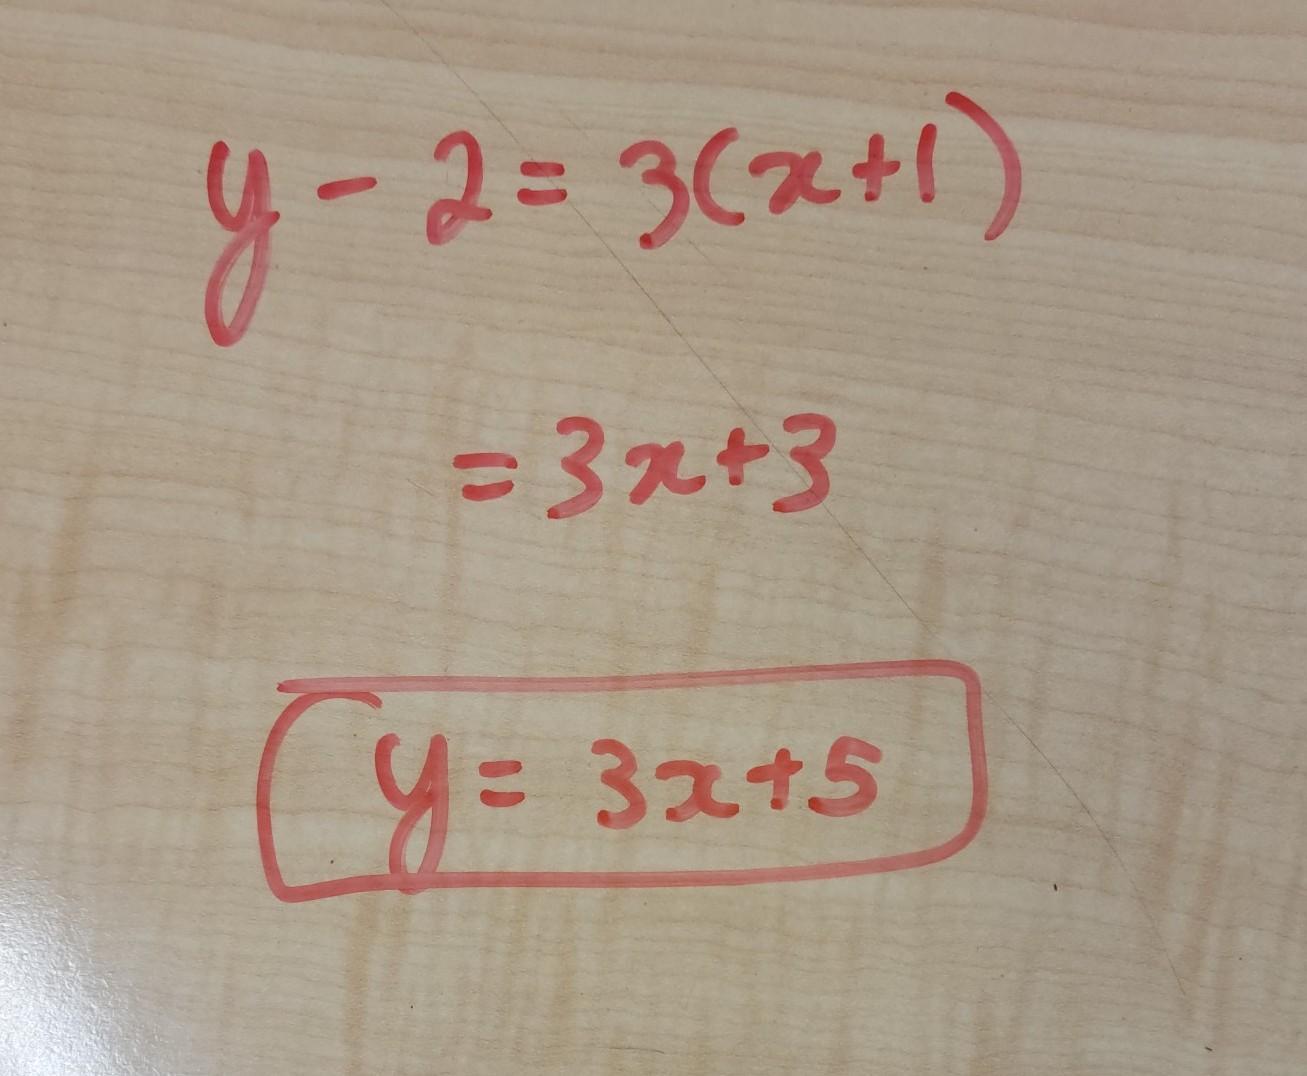 y - 2 = 3(x+1)
= 3x+3
y = 3x+5